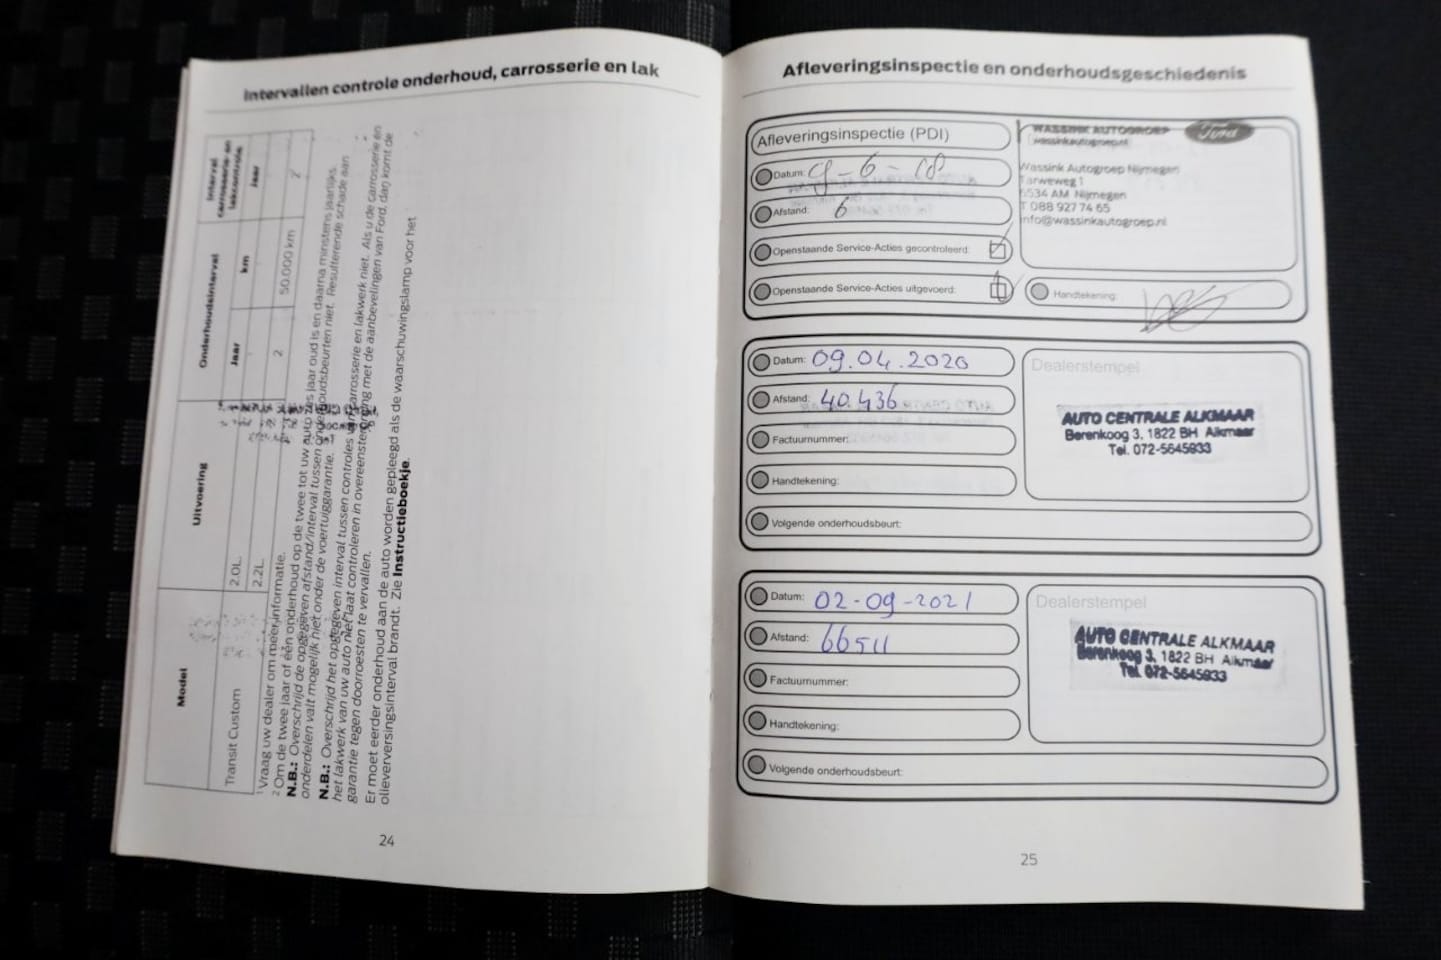 Intervallen controle onderhoud, carrosserie en lak
Model
Uitvoering
Onderhoudsinterval
Interval carrosserie- en lakcontrole
Jaar
km
Jaar
Transit Custom
2.0L
2.2L
2
50.000 km
2
1 Vraag uw dealer om meer informatie.
2 Om de twee jaar of één onderhoud op de twee tot uw auto zes jaar oud is en daarna minstens jaarlijks.
N.B.: Overschrijd de opgegeven afstand/interval tussen onderhoudsbeurten niet. Resulterende schade aan
onderdelen valt mogelijk niet onder de voertuiggarantie.
N.B.: Overschrijd het opgegeven interval tussen controles van carrosserie en lakwerk niet. Als u de carrosserie en
het lakwerk van uw auto niet laat controleren in overeenstemming met de aanbevelingen van Ford, dan komt de
garantie tegen doorroesten te vervallen.
Er moet eerder onderhoud aan de auto worden gepleegd als de waarschuwingslamp voor het
olieverversingsinterval brandt. Zie Instructieboekje.
24
Afleveringsinspectie en onderhoudsgeschiedenis
Afleveringsinspectie (PDI)
Datum: 9-6-18
Afstand: 6
Openstaande Service-Acties gecontroleerd:
Openstaande Service-Acties uitgevoerd:
WASSINK AUTOGROEP
wassinkautogroep.nl
Ford
Wassink Autogroep Nijmegen
Tarweweg 1
6534 AM Nijmegen
T 088 927 74 65
info@wassinkautogroep.nl
Handtekening:
Datum: 09.04.2020
Afstand: 40.436
Factuurnummer:
Handtekening:
Volgende onderhoudsbeurt:
Dealerstempel
AUTO CENTRALE ALKMAAR
Berenkoog 3, 1822 BH Alkmaar
Tel. 072-5645933
Datum: 02-09-2021
Afstand: 66511
Factuurnummer:
Handtekening:
Volgende onderhoudsbeurt:
Dealerstempel
AUTO CENTRALE ALKMAAR
Berenkoog 3, 1822 BH Alkmaar
Tel. 072-5645933
25